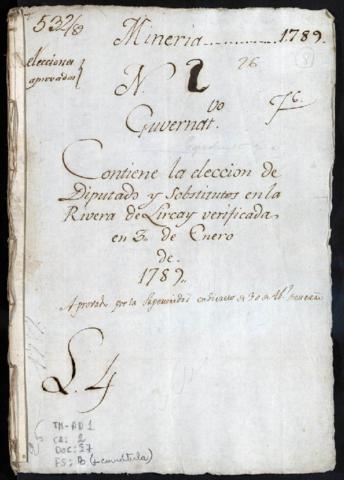 532/8
Mineria 1789.
elecciones
aprovadas
N. 2
26
8
Guvernat.vo
Contiene la eleccion de
Diputado y Sobstitutos en la
Rivera de Lircay verificada
en 3. de Enero
de
1789.
Aprovada por la Superioridad
L. 4
TM-AD 1
CA: 2
DOC: 27